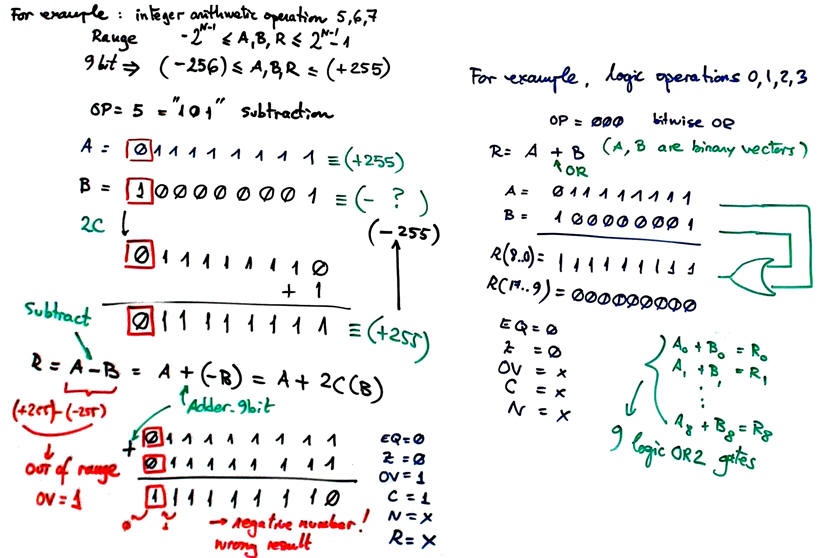 For example : integer arithmetic operation 5,6,7
Range -2^(N-1) ≤ A,B,R ≤ 2^(N-1)-1
9 bit ⇒ (-256) ≤ A,B,R ≤ (+255)
OP= 5 = "101" subtraction
A = 011111111 ≡ (+255)
B = 100000001 ≡ (- ?)
2C ↓ (-255)
011111110
+ 1
011111111 ≡ (+255)
Subtract
R = A-B = A + (-B) = A + 2C(B)
(+255)-(-255)
Adder-9bit
out of range
OV = 1
+ 011111111
011111111
111111110
0 1
→ negative number!
wrong result
EQ=0
Z =0
OV=1
C = 1
N=x
R=x
For example, logic operations 0,1,2,3
OP = 000 bitwise OR
R= A + B (A, B are binary vectors)
OR
A= 011111111
B= 100000001
R(8..0)= 111111111
R(17..9)= 000000000
EQ=0
Z =0
OV = x
C = x
N = x
A0 + B0 = R0
A1 + B1 = R1
⋮
A8 + B8 = R8
9 logic OR2 gates